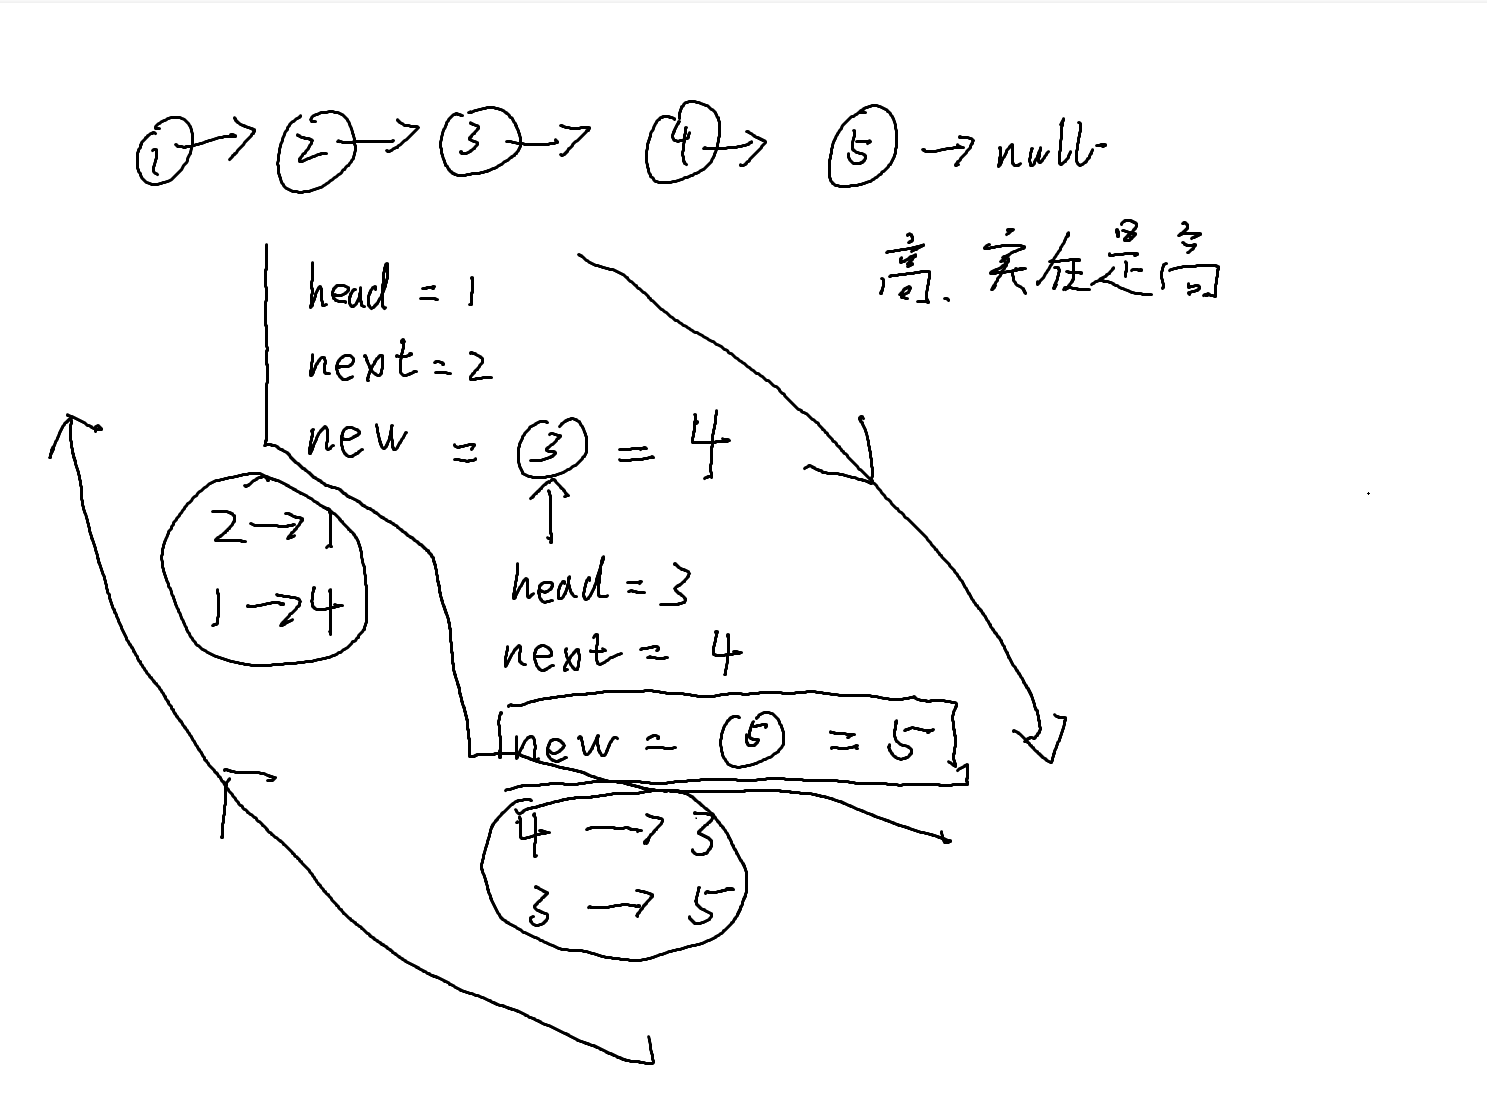 1 → 2 → 3 → 4 → 5 → null
高、实在是高
head = 1
next = 2
new = 3 = 4
2 → 1
1 → 4
head = 3
next = 4
new = 5 = 5
4 → 3
3 → 5